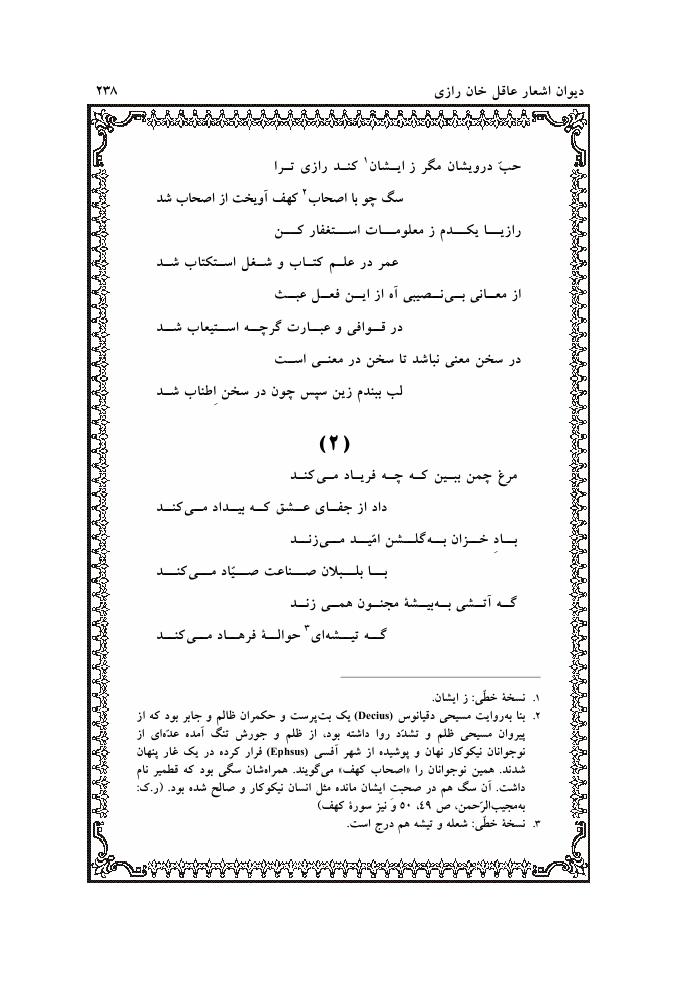 دیوان اشعار عاقل خان رازی ۲۳۸
حبّ درویشان مگر ز ایشان۱ کند رازی ترا
سگ چو با اصحاب۲ کهف آویخت از اصحاب شد
رازیا یکدم ز معلومات استغفار کن
عمر در علم کتاب و شغل استکتاب شد
از معانی بی‌نصیبی آه از این فعل عبث
در قوافی و عبارت گرچه استیعاب شد
در سخن معنی نباشد تا سخن در معنی است
لب ببندم زین سپس چون در سخن اِطناب شد
(۲)
مرغ چمن ببین که چه فریاد می‌کند
داد از جفای عشق که بیداد می‌کند
بادِ خزان به‌گلشن امّید می‌زند
با بلبلان صناعت صیّاد می‌کند
گه آتشی به‌بیشهٔ مجنون همی زند
گه تیشه‌ای۳ حوالهٔ فرهاد می‌کند
۱. نسخهٔ خطّی: ز ایشان.
۲. بنا به‌روایت مسیحی دقیانوس (Decius) یک بت‌پرست و حکمران ظالم و جابر بود که از
پیروان مسیحی ظلم و تشدّد روا داشته بود، از ظلم و جورش تنگ آمده عدّه‌ای از
نوجوانان نیکوکار نهان و پوشیده از شهر اَفسی (Ephsus) فرار کرده در یک غار پنهان
شدند. همین نوجوانان را «اصحاب کهف» می‌گویند. همراه‌شان سگی بود که قطمیر نام
داشت. آن سگ هم در صحبت ایشان مانده مثل انسان نیکوکار و صالح شده بود. (ر.ک:
به‌مجیب‌الرّحمن، ص ۴۹، ۵۰ و نیز سورهٔ کهف)
۳. نسخهٔ خطّی: شعله و تیشه هم درج است.